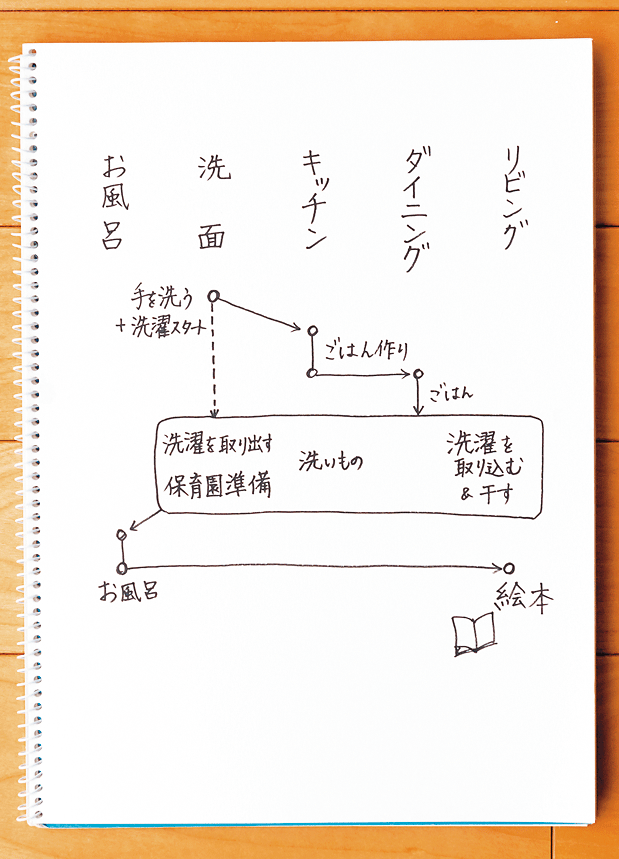 お風呂
洗面
キッチン
ダイニング
リビング
手を洗う
+洗濯スタート
ごはん作り
ごはん
洗濯を取り出す
保育園準備
洗いもの
洗濯を
取り込む
&干す
お風呂
絵本